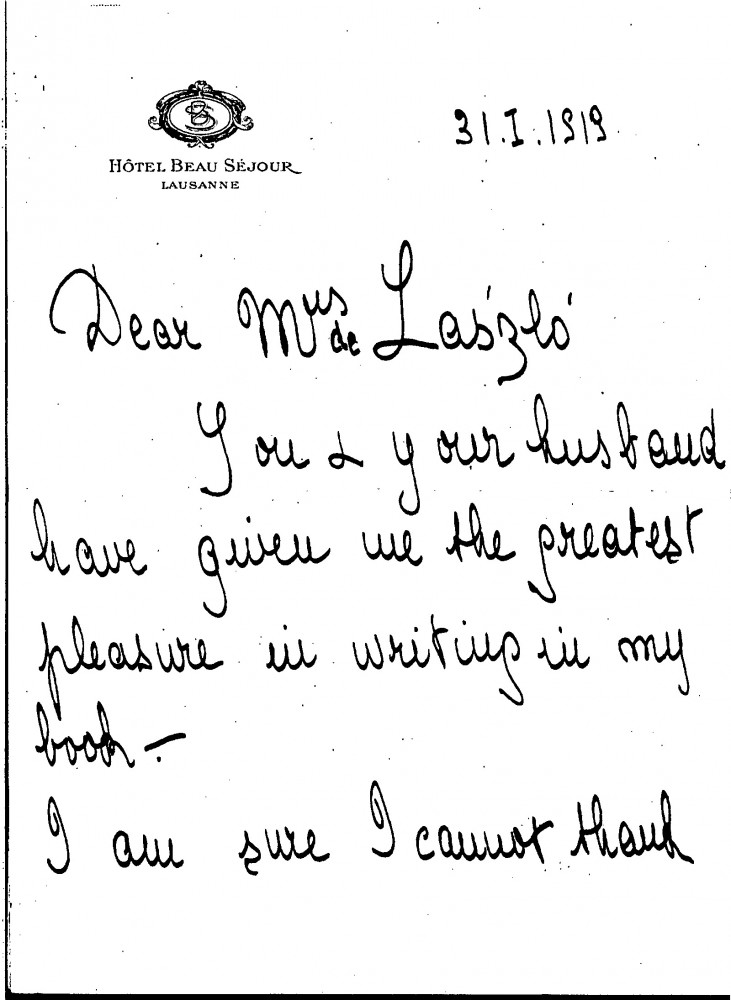 31.I.1919
HÔTEL BEAU SÉJOUR
LAUSANNE
Dear Mrs de László
You & your husband
have given me the greatest
pleasure in writing in my
book —
I am sure I cannot thank